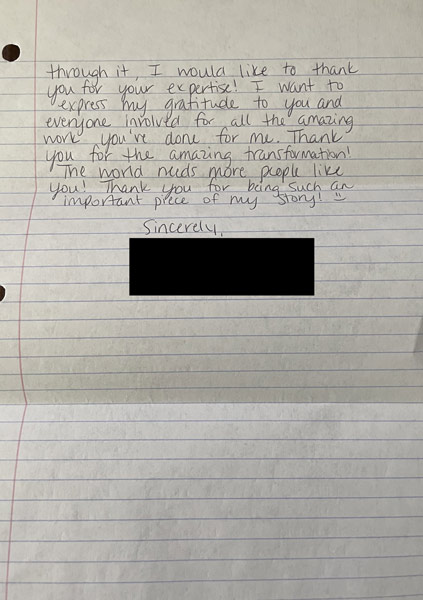 through it, I would like to thank
you for your expertise! I want to
express my gratitude to you and
everyone involved for all the amazing
work you've done for me. Thank
you for the amazing transformation!
The world needs more people like
you! Thank you for being such an
important piece of my story! :)
Sincerely,